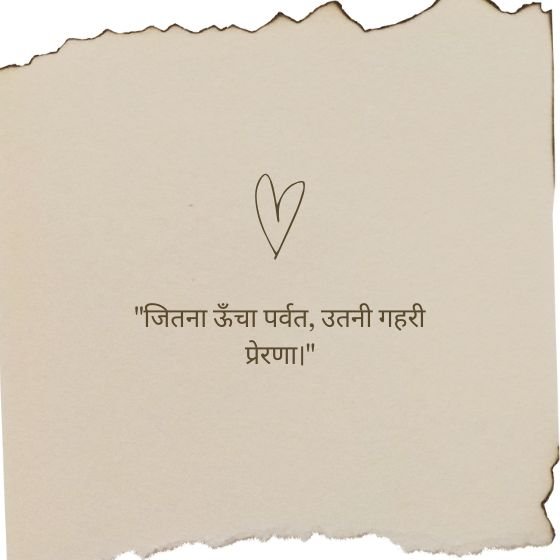 "जितना ऊँचा पर्वत, उतनी गहरी
प्रेरणा।"